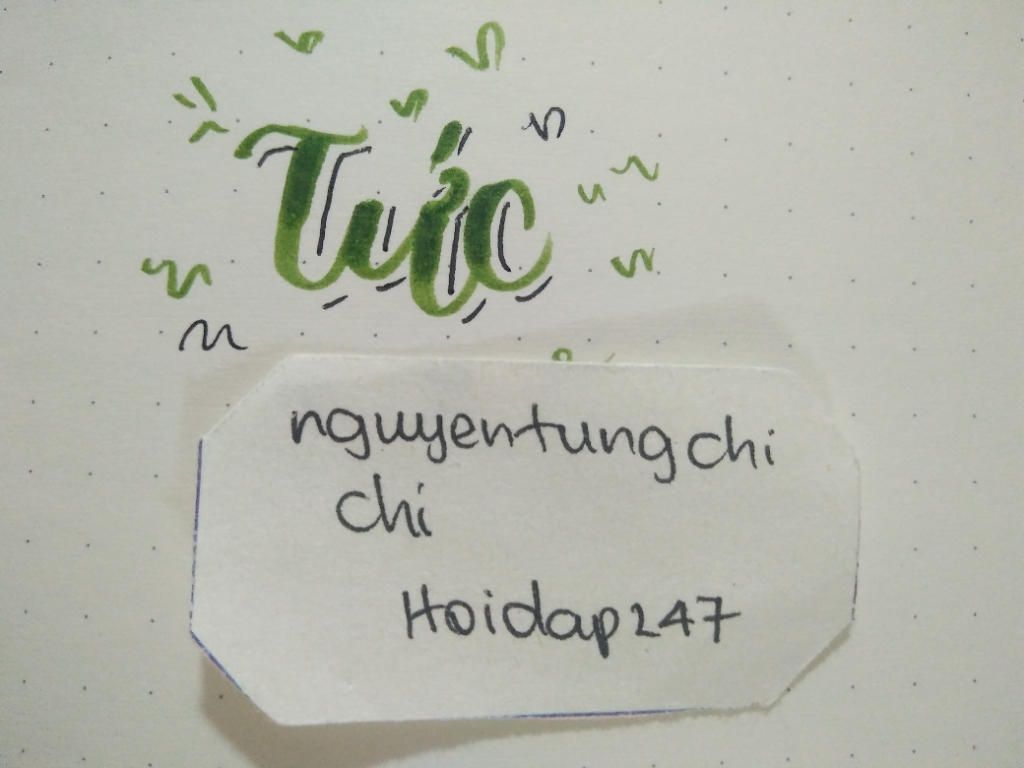 Tức
nguyentungchi
chi
Hoidap247